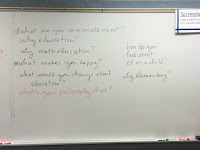 What are you passionate about?
Why education?
Why math education?
What makes you happy?
What would you change about
education?
What's your philosophy of ed?
how do you
feel about
as a child?
Why elementary?
Successful